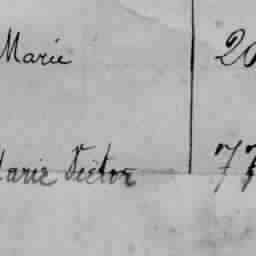 Marie 20
Marie Victor 77